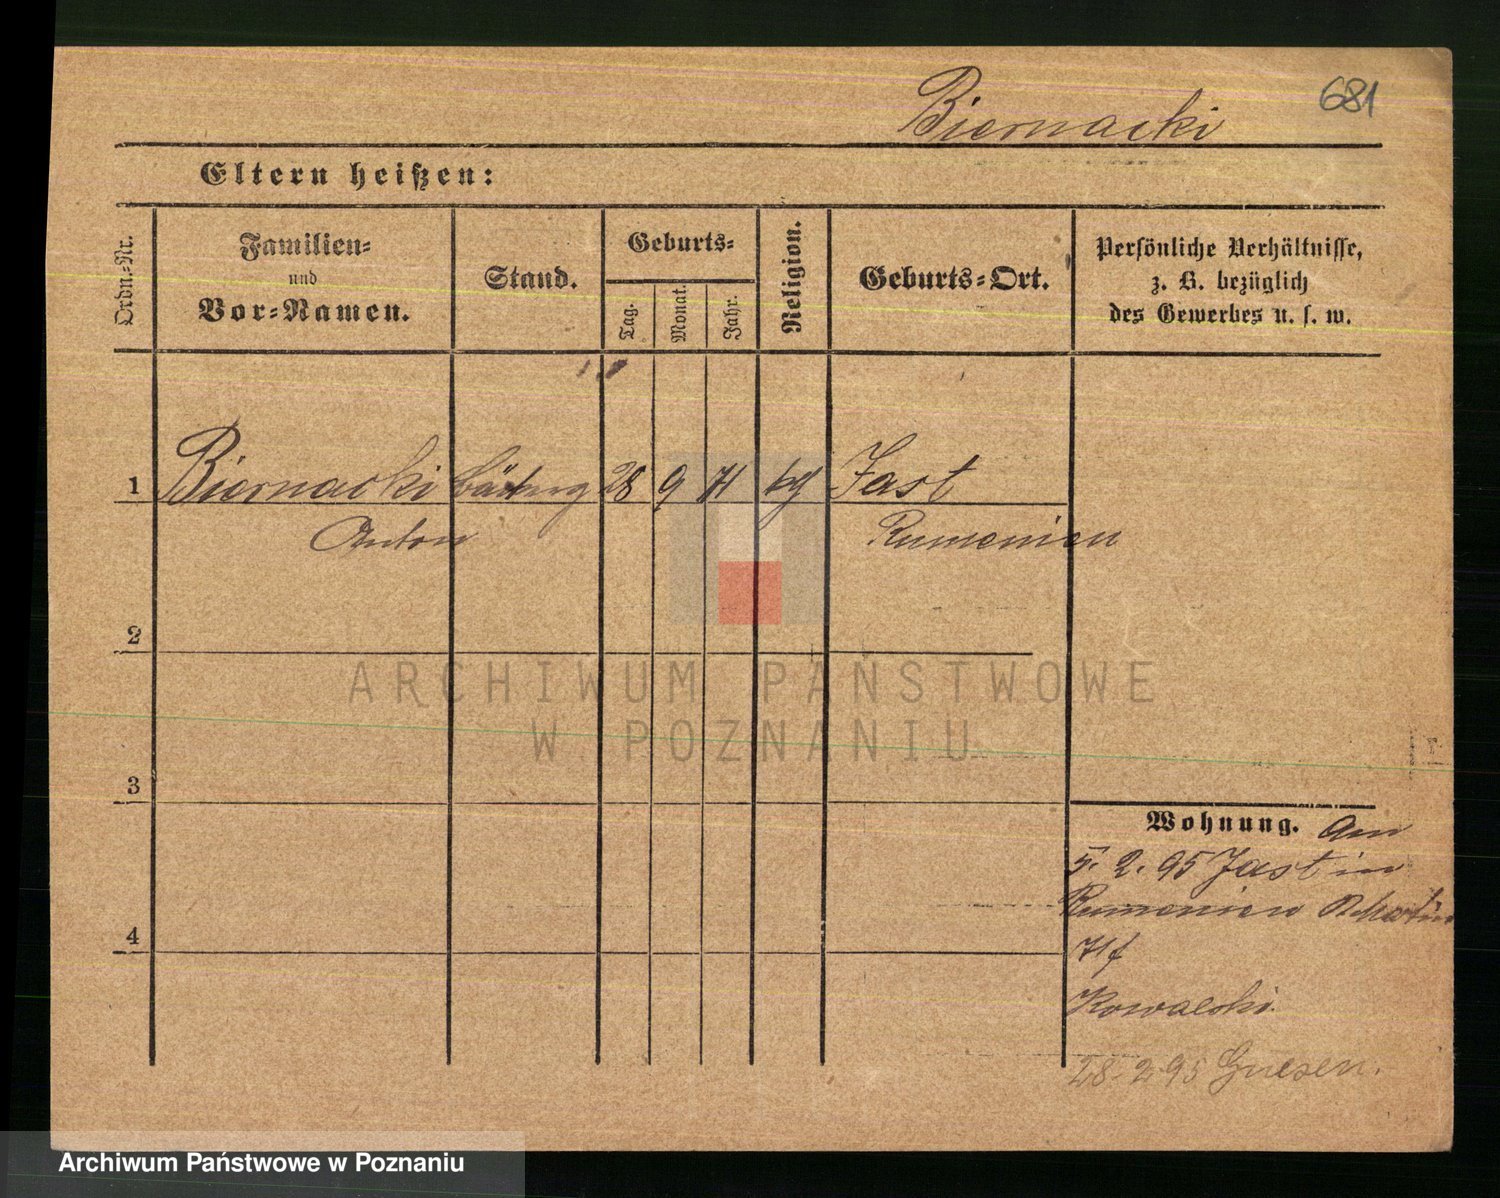 681
Biernacki
Eltern heißen:
Ordn.-Nr.
Familien-
und
Vor-Namen.
Stand.
Geburts-
Tag.
Monat.
Jahr.
Religion.
Geburts-Ort.
Persönliche Verhältnisse,
z. B. bezüglich
des Gewerbes u. s. w.
1 Biernacki 28 9 71 Jast
Anton Rumenien
2
3
4
Wohnung. Am
5. 2. 95 Jast in
Rumenien
71
Kowalski.
28-2 95 Gnesen.
ARCHIWUM PAŃSTWOWE
W POZNANIU
Archiwum Państwowe w Poznaniu